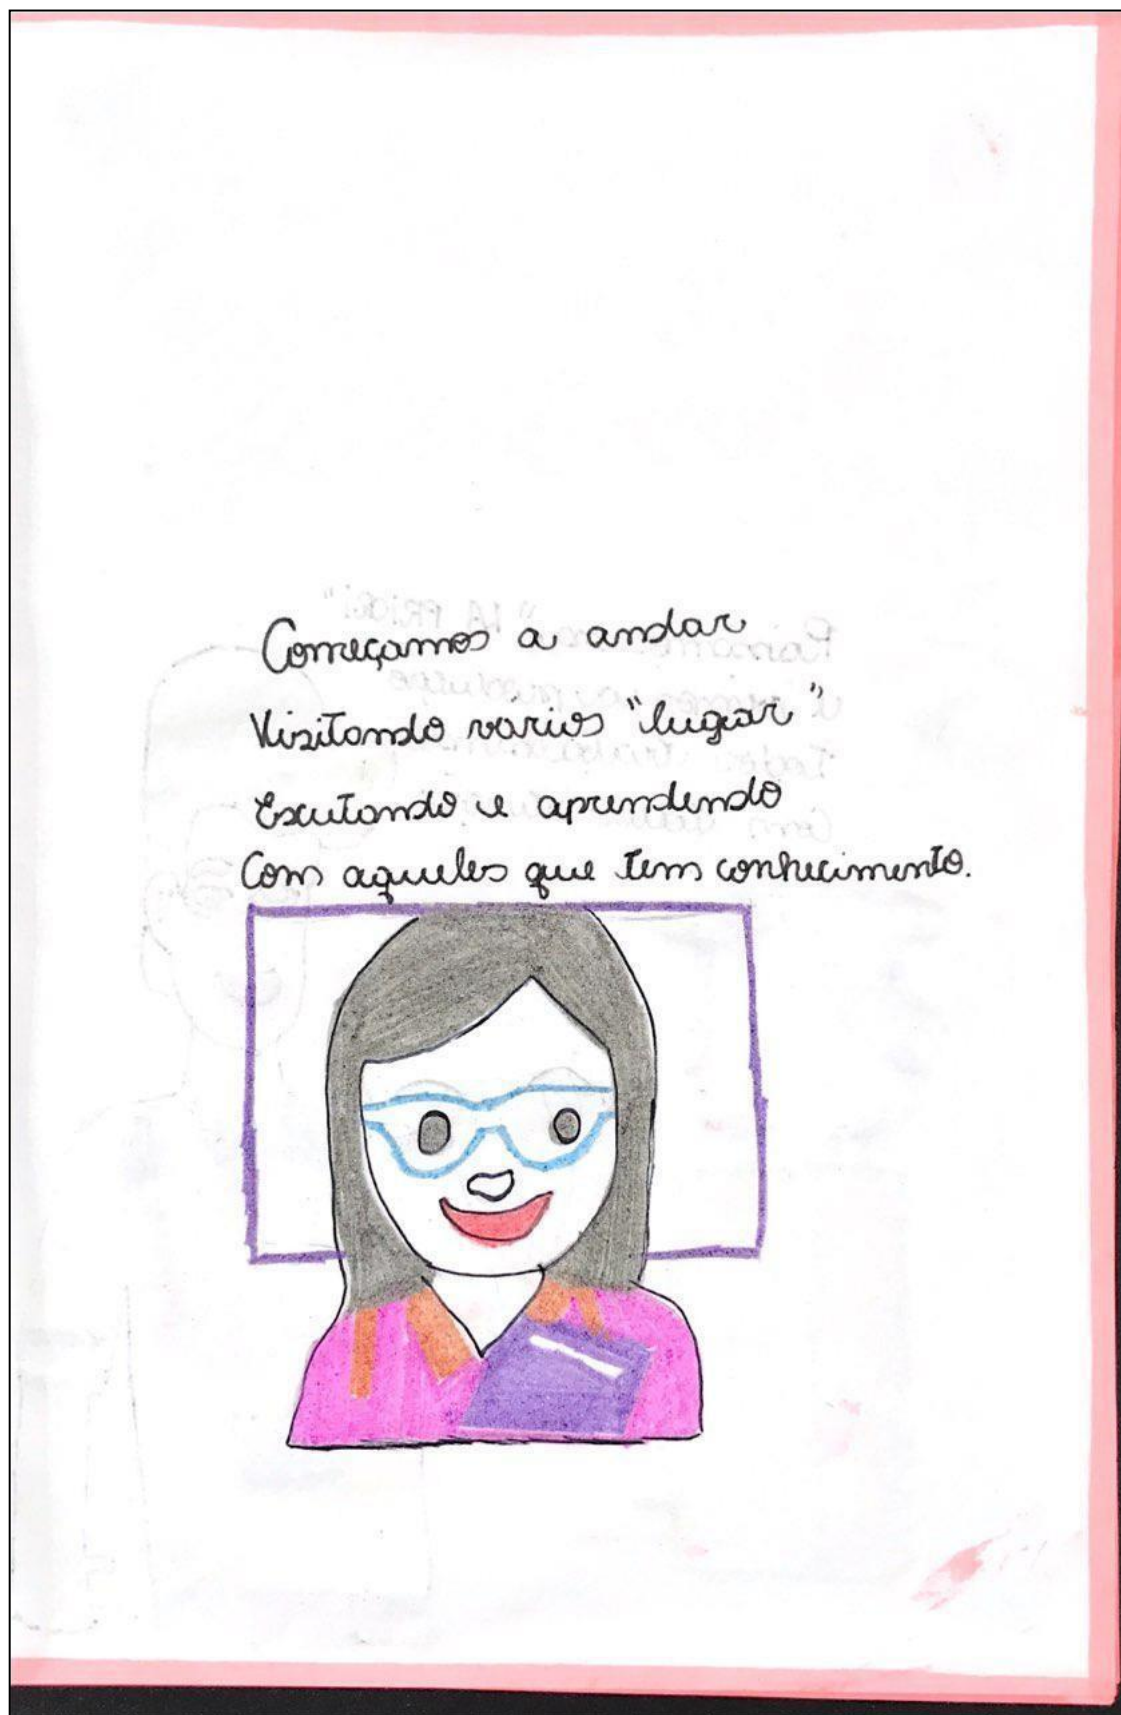 Começamos a andar
Visitando vários "lugar"
Escutando e aprendendo
Com aqueles que tem conhecimento.